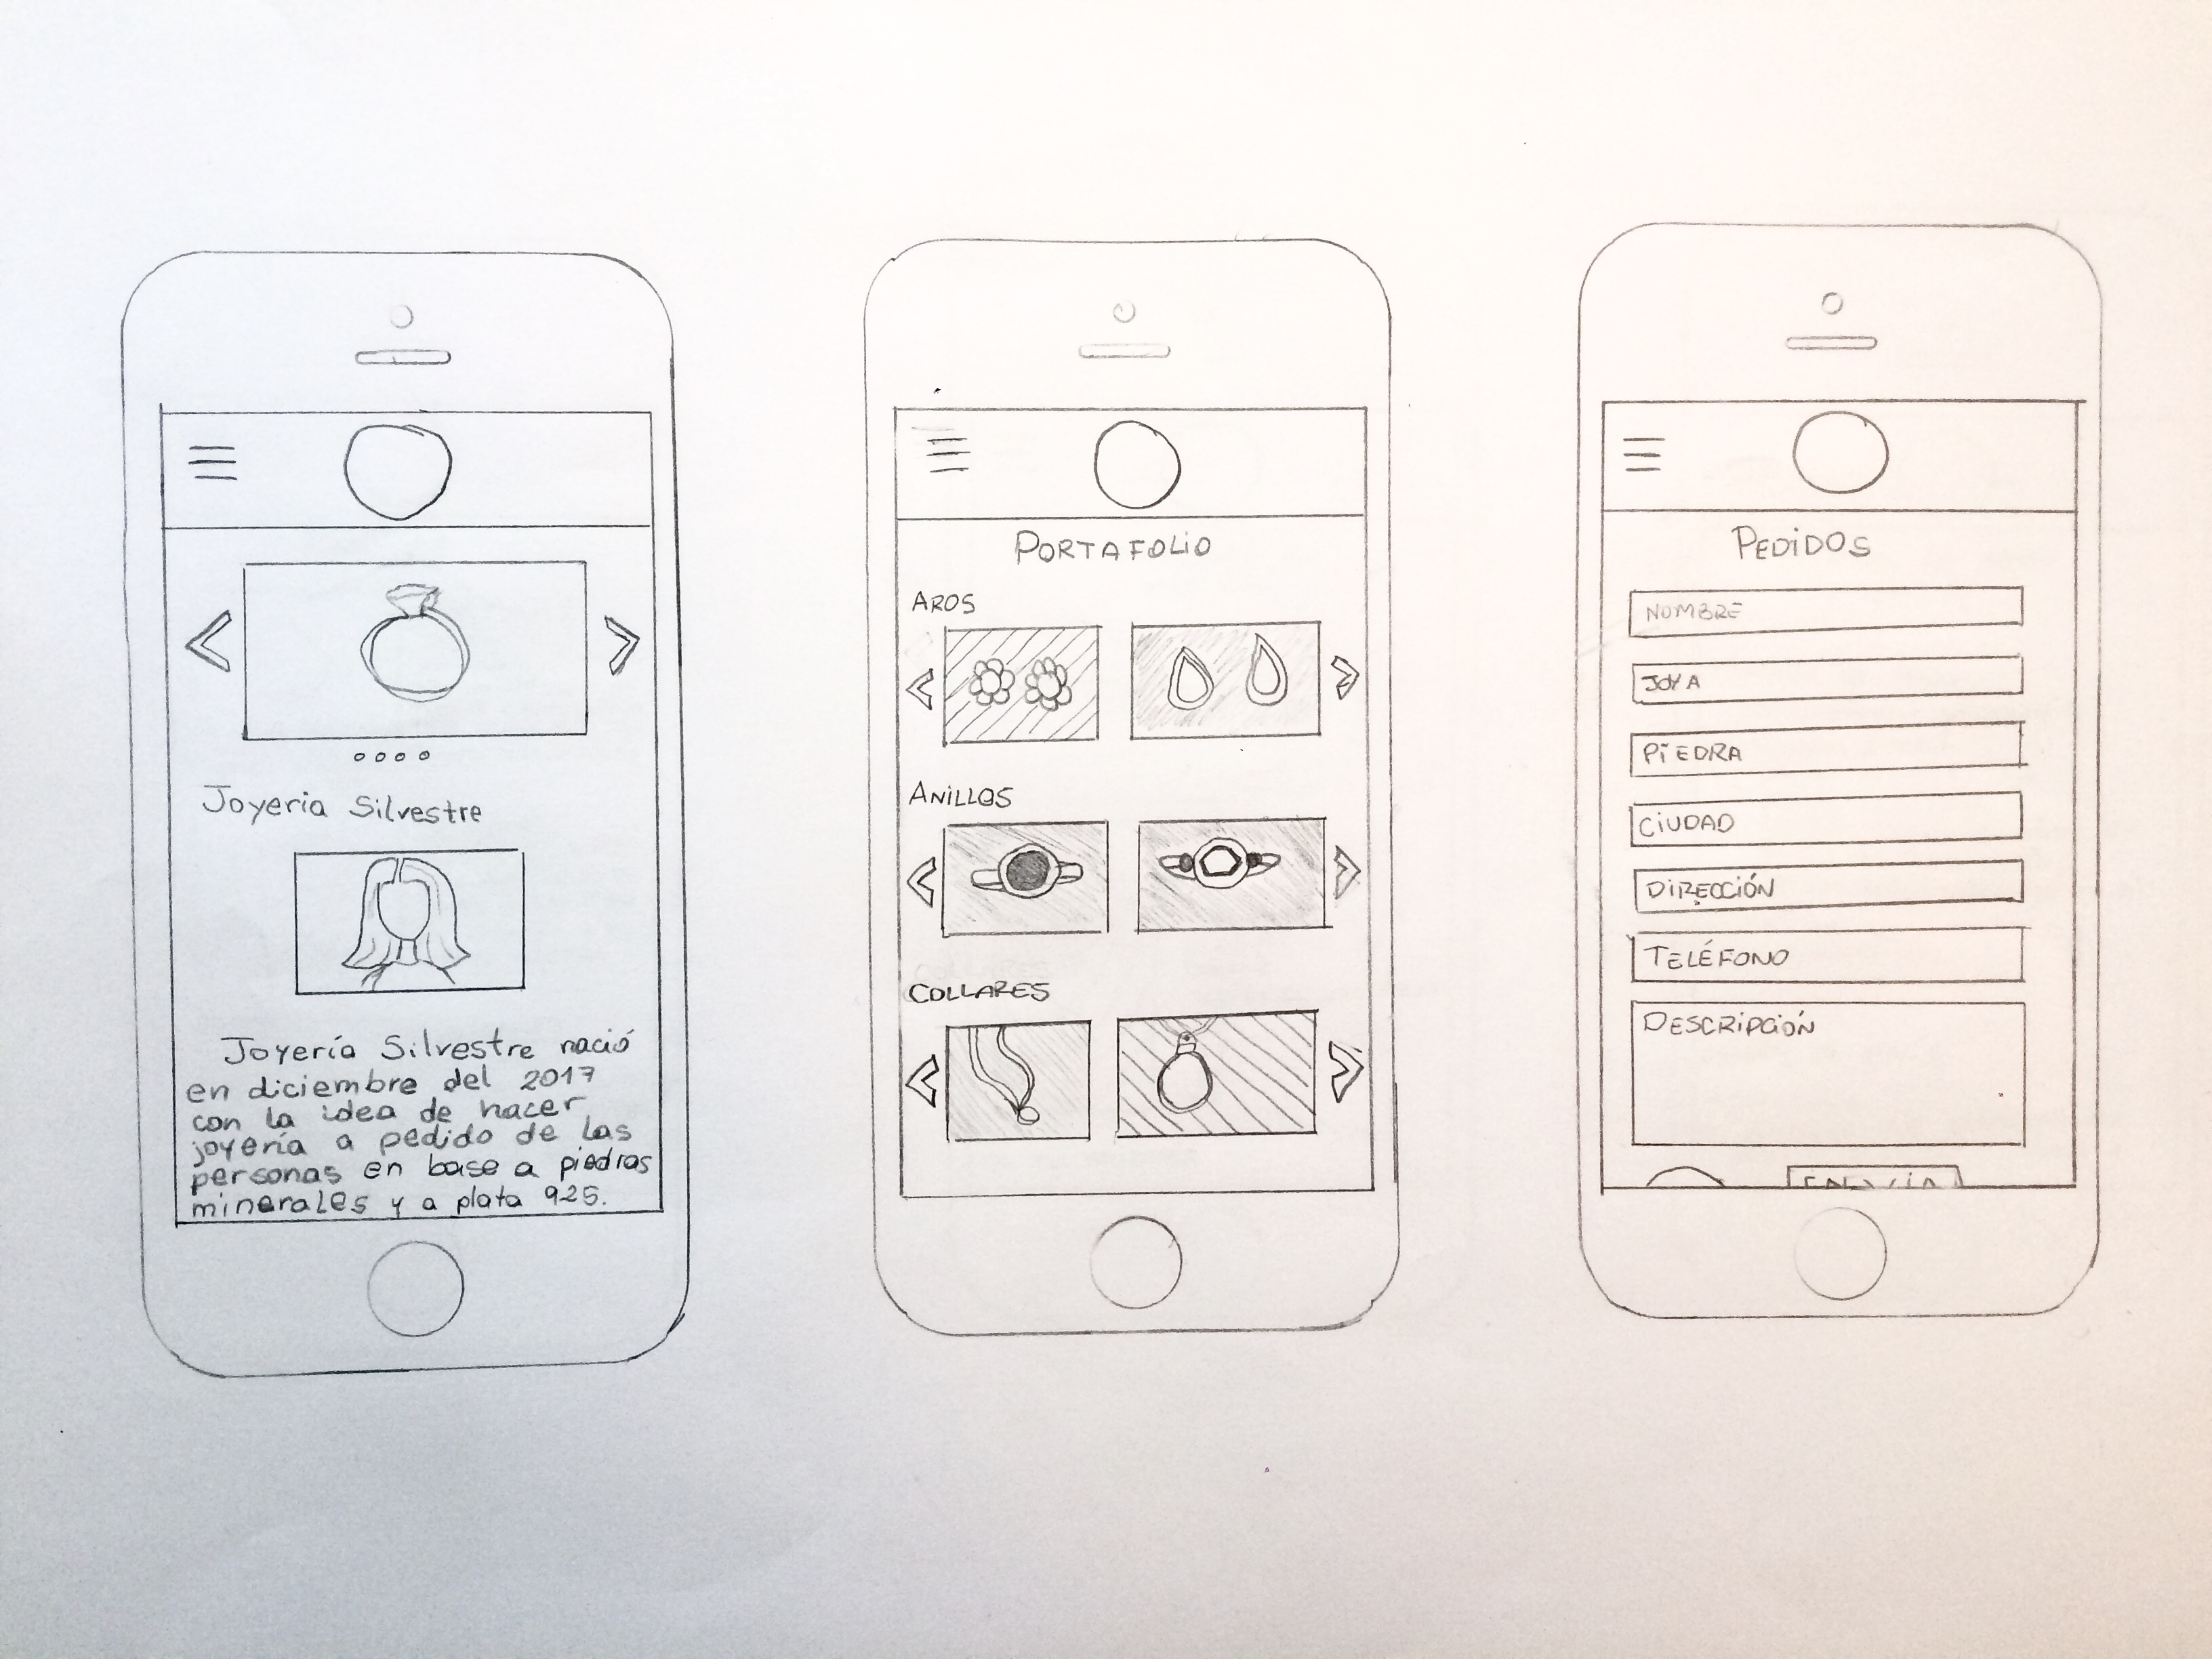 Joyería Silvestre
Joyería Silvestre nació
en diciembre del 2017
con la idea de hacer
joyería a pedido de las
personas en base a piedras
minerales y a plata 925.
PORTAFOLIO
AROS
ANILLOS
COLLARES
PEDIDOS
NOMBRE
JOYA
PIEDRA
CIUDAD
DIRECCIÓN
TELÉFONO
DESCRIPCIÓN